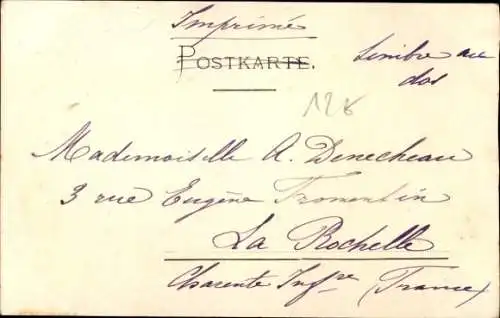 Imprimé
POSTKARTE.
Timbre au
dos
12 k
Mademoiselle A. Denecheau
3 rue Eugène Fromentin
La Rochelle
Charente Infre (France)